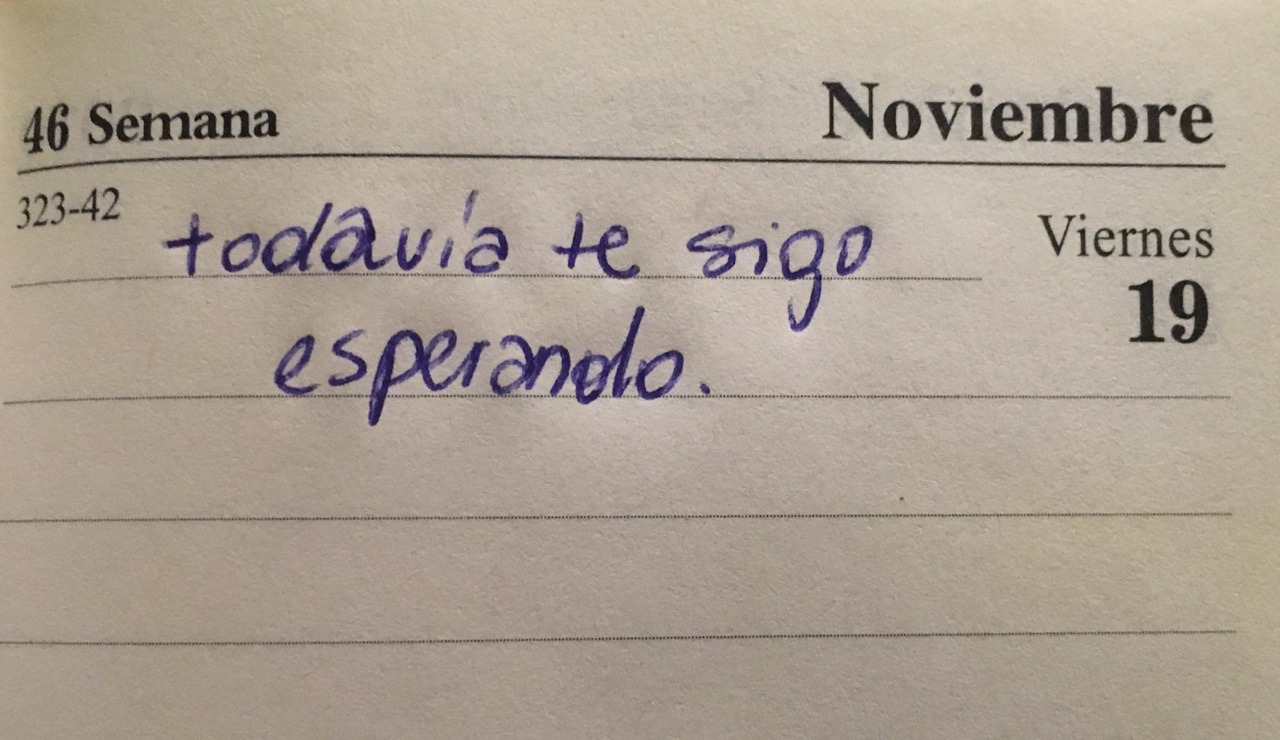 46 Semana Noviembre
323-42 todavía te sigo Viernes
19
esperando.